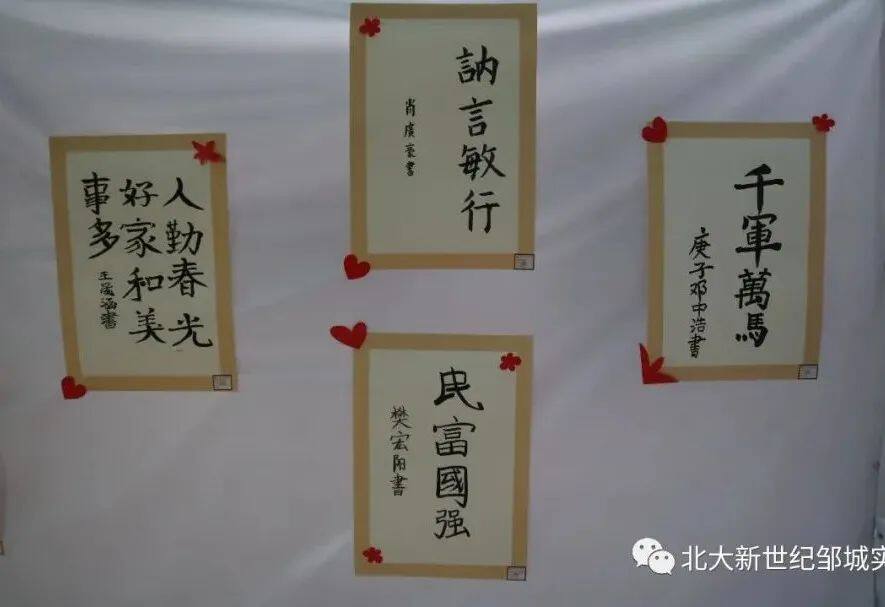 人勤春光
好家和美
事多
王涵書
訥言敏行
肖虞豪書
民富國强
樊宏阳書
千軍萬馬
庚子邓中浩書
北大新世纪邹城实